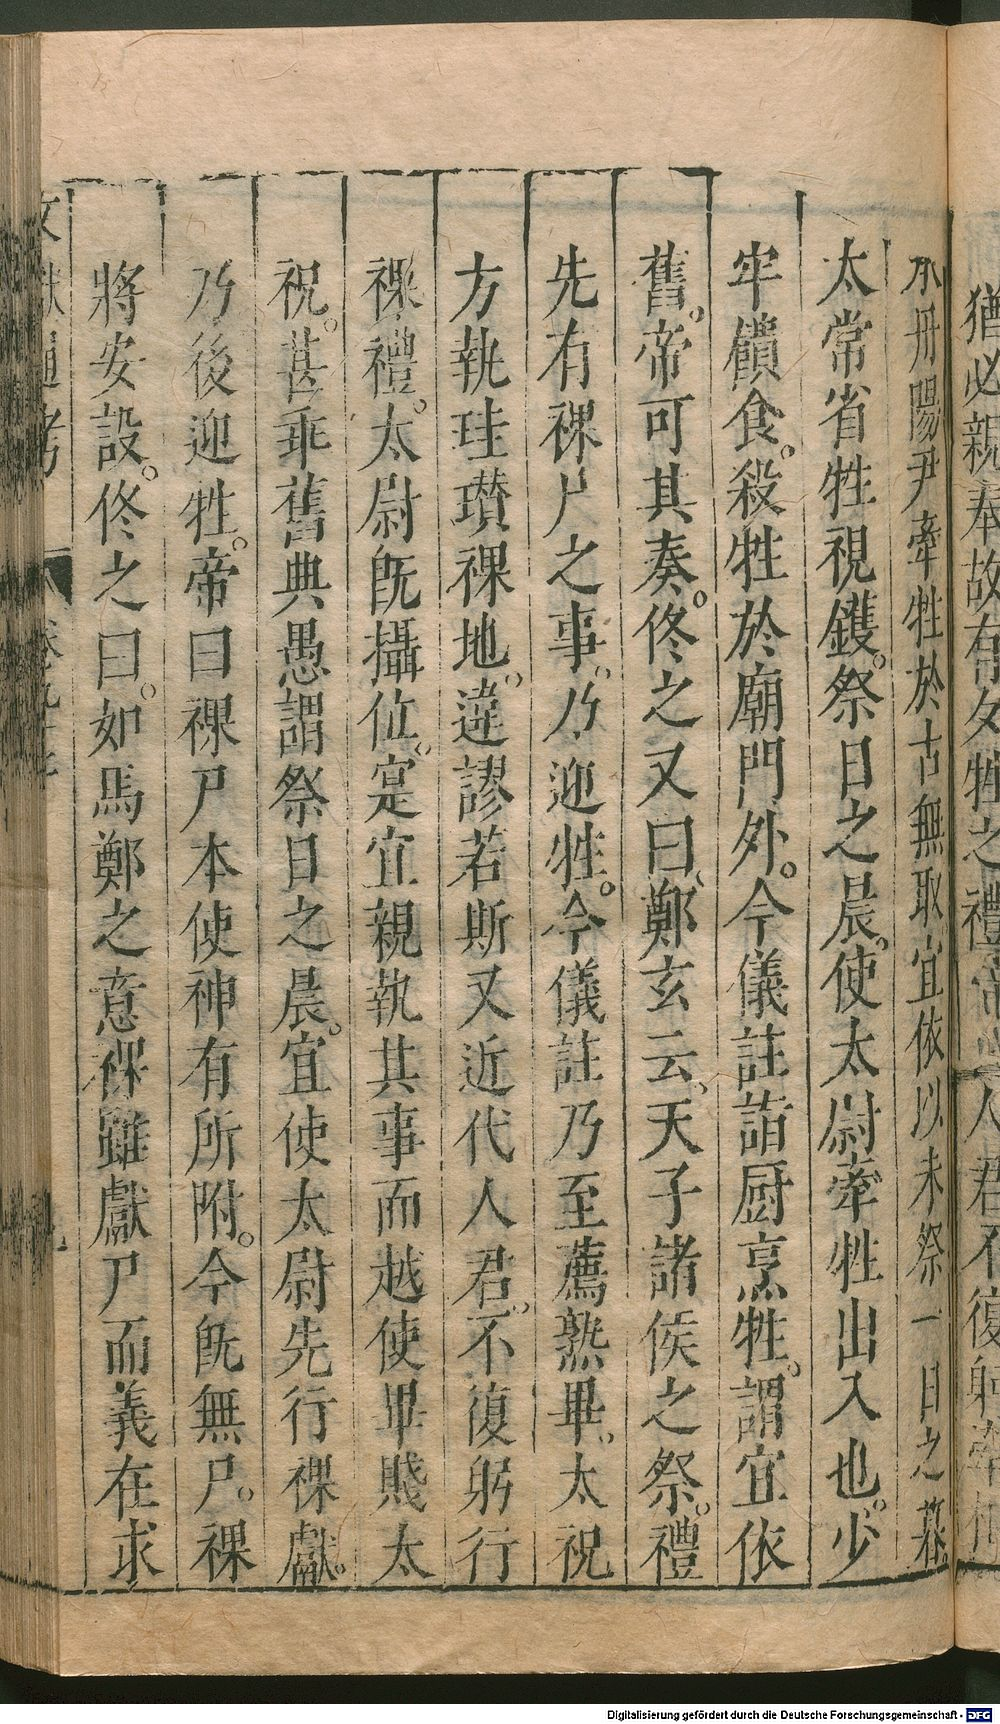 猶必親奉故有夕牲之禮
人君不復躬牽相
丹陽尹牽牲於古無取宜依以未祭一日之暮
太常省牲視鑊。祭日之晨。使太尉牽牲出入也。少
牢饋食。殺牲於廟門外。今儀註詣厨烹牲。謂宜依
舊。帝可其奏。佟之又曰、鄭玄云、天子諸侯之祭。禮
先有祼尸之事。乃迎牲。今儀註乃至薦熟畢。太祝
方執珪瓚祼地。違謬若斯又近代人君。不復躬行
祼禮。太尉旣攝位。寔宜親執其事而越使畢賤太
祝。甚乖舊典愚謂祭日之晨。宜使太尉先行祼獻。
乃後迎牲。帝曰祼尸本使神有所附。今旣無尸。祼
將安設。佟之曰。如馬鄭之意祼雖獻尸而義在求
文獻通考
Digitalisierung gefördert durch die Deutsche Forschungsgemeinschaft - DFG